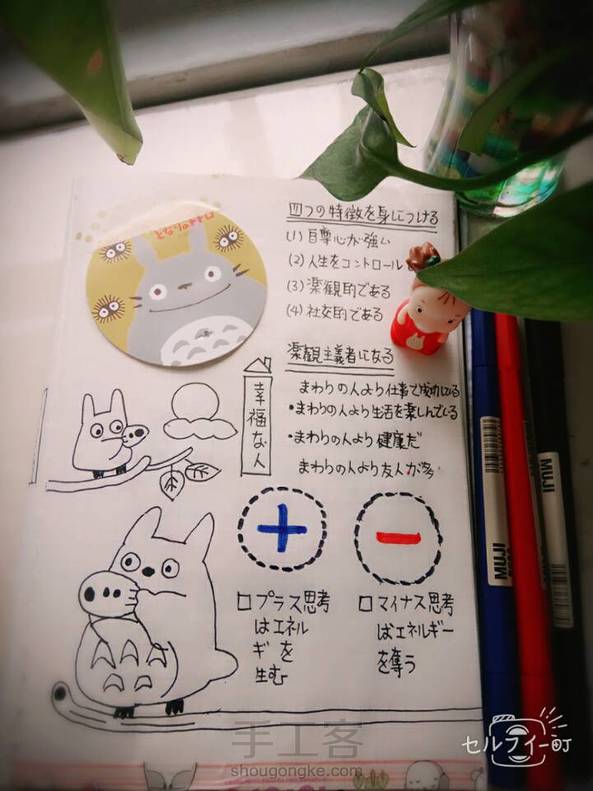 となりのトトロ
四つの特徴を身につける
(1) 自尊心が強い
(2) 人生をコントロール
(3) 楽観的である
(4) 社交的である
楽観主義者になる
まわりの人より仕事で成功している
・まわりの人より生活を楽しんでいる
・まわりの人より健康だ
まわりの人より友人が多
幸福な人
＋
－
□プラス思考
はエネル
ギを
生む
□マイナス思考
はエネルギー
を奪う
MUJI
MUJI
手工客
shougongke.com
セルフィー町